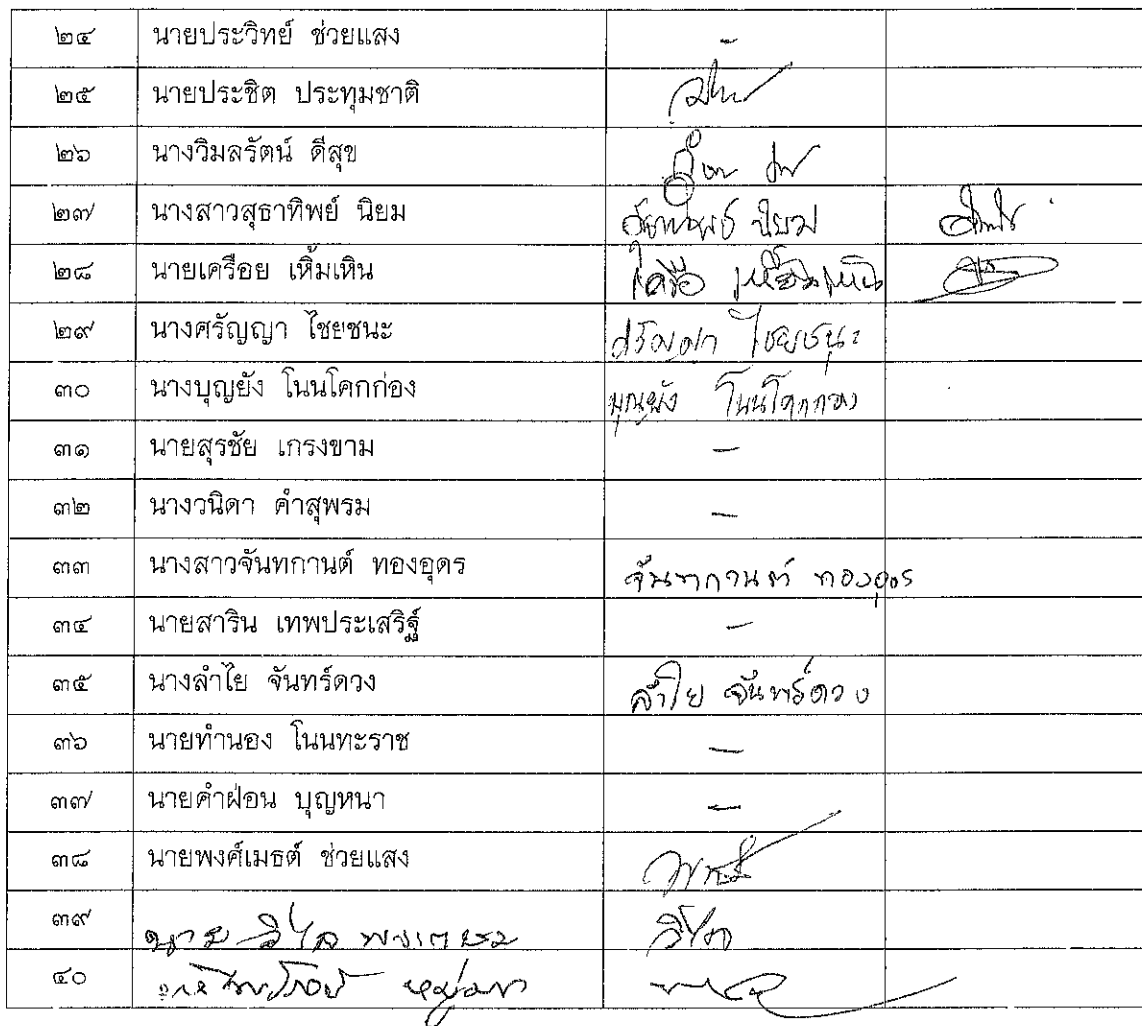 ๒๔ นายประวิทย์ ช่วยแสง -
๒๕ นายประชิต ประทุมชาติ
๒๖ นางวิมลรัตน์ ดีสุข
๒๗ นางสาวสุธาทิพย์ นิยม สุธาทิพย์ นิยม
๒๘ นายเครือย เหิ้มเหิน
๒๙ นางศรัญญา ไชยชนะ ศรัญญา ไชยชนะ
๓๐ นางบุญยัง โนนโคกก่อง บุญยัง โนนโคกกอง
๓๑ นายสุรชัย เกรงขาม -
๓๒ นางวนิดา คำสุพรม -
๓๓ นางสาวจันทกานต์ ทองอุดร จันทกานต์ ทองอุดร
๓๔ นายสาริน เทพประเสริฐ์ -
๓๕ นางลำไย จันทร์ดวง ลำไย จันทร์ดวง
๓๖ นายทำนอง โนนทะราช -
๓๗ นายคำฝ่อน บุญหนา -
๓๘ นายพงศ์เมธต์ ช่วยแสง
๓๙ นาย วิไล
๔๐